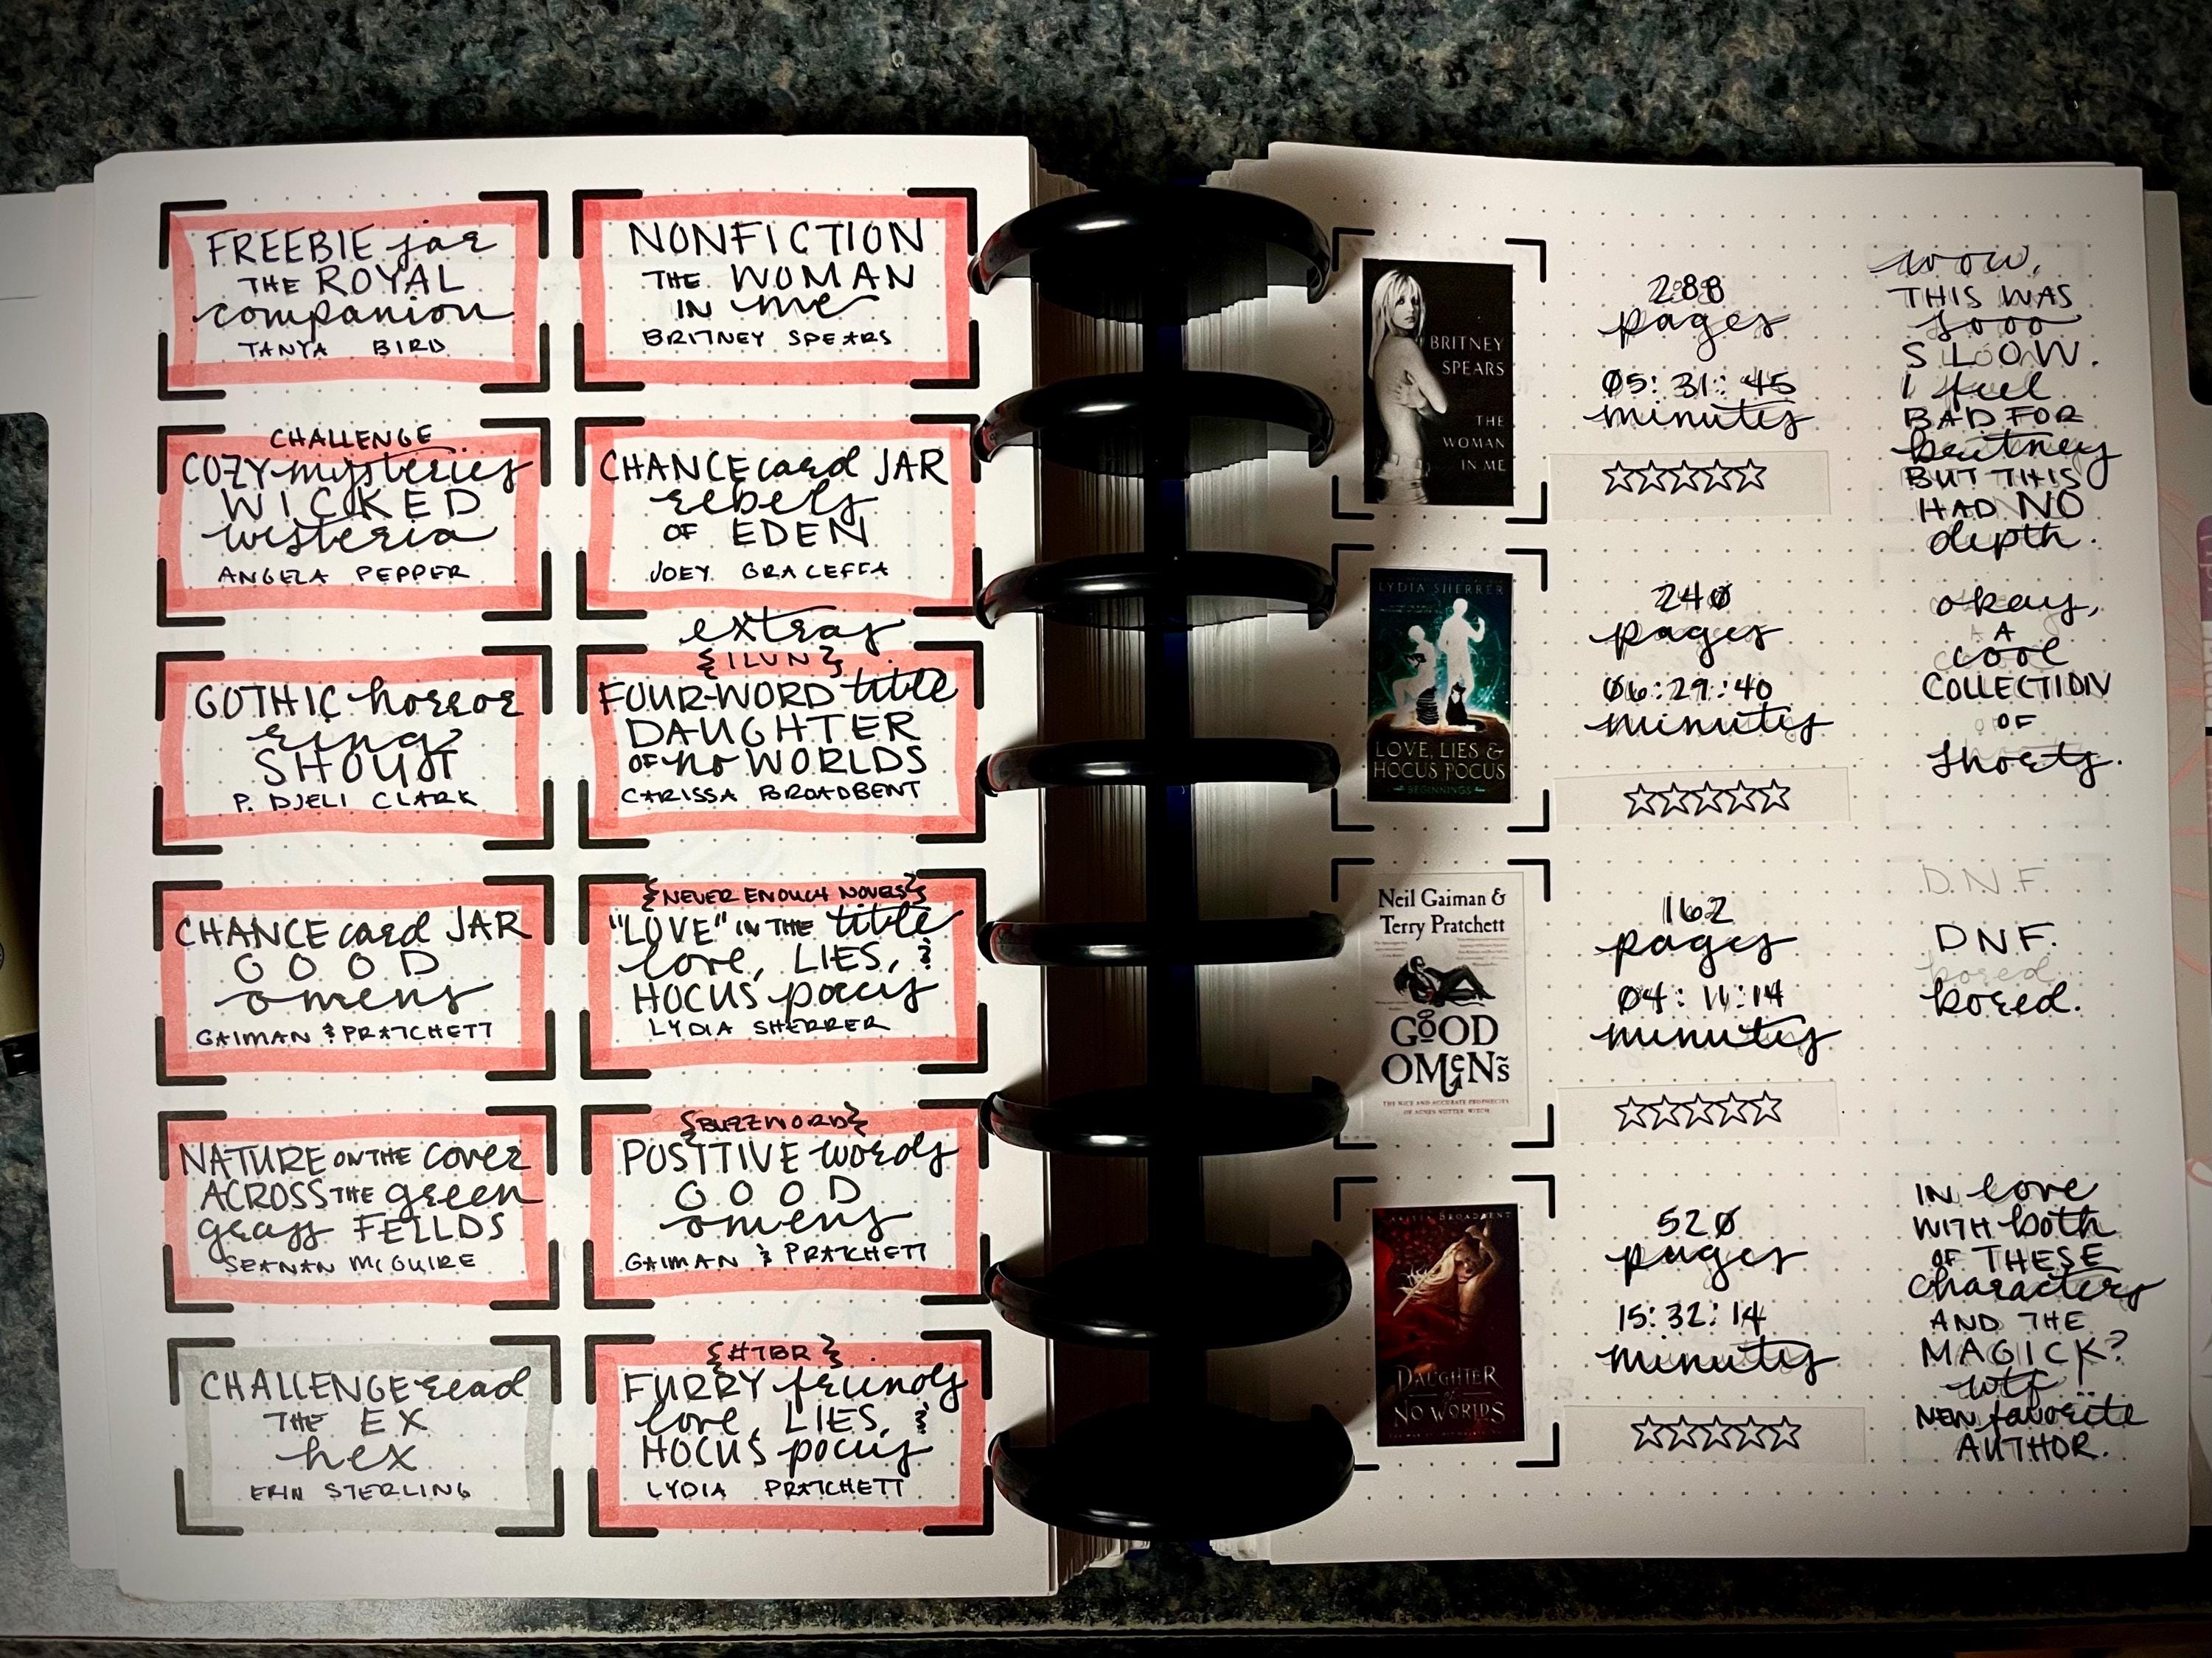 FREEBIE jar
THE ROYAL
companion
TANYA BIRD
CHALLENGE
COZY mysteries
WICKED
wisteria
ANGELA PEPPER
GOTHIC horror
ring
SHOUT
P. DJELI CLARK
CHANCE card JAR
GOOD
omens
GAIMAN & PRATCHETT
NATURE ON THE cover
ACROSS THE green
grass FEILDS
SEANAN MCGUIRE
CHALLENGE read
THE EX
hex
ERIN STERLING
NONFICTION
THE WOMAN
IN me
BRITNEY SPEARS
CHANCE card JAR
rebels
OF EDEN
JOEY GRACEFFA
extras
{ILUN}
FOUR-WORD title
DAUGHTER
OF no WORLDS
CARISSA BROADBENT
{NEVER ENOUGH NOVELS}
"LOVE" IN THE title
love, LIES, &
HOCUS pocus
LYDIA SHERRER
{BUZZWORD}
POSITIVE words
GOOD
omens
GAIMAN & PRATCHETT
{#TBR}
FURRY friends
love, LIES, &
HOCUS pocus
LYDIA PRATCHETT
BRITNEY
SPEARS
THE
WOMAN
IN ME
288
pages
05:31:45
minutes
wow,
THIS WAS
sooo
SLOW.
I feel
BAD FOR
britney
BUT THIS
HAD NO
depth.
LYDIA SHERRER
LOVE, LIES &
HOCUS POCUS
BEGINNINGS
240
pages
06:29:40
minutes
okay,
A
cool
COLLECTION
OF
shorts.
Neil Gaiman &
Terry Pratchett
GOOD
OMENS
THE NICE AND ACCURATE PROPHECIES
OF AGNES NUTTER, WITCH
162
pages
04:11:14
minutes
D.N.F.
DNF.
bored.
bored.
CARISSA BROADBENT
DAUGHTER
of
NO WORLDS
520
pages
15:32:14
minutes
IN love
WITH both
OF THESE
characters
AND THE
MAGICK?
wtf
NEW favorite
AUTHOR.